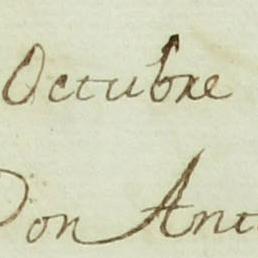 Octubre
Don Ant